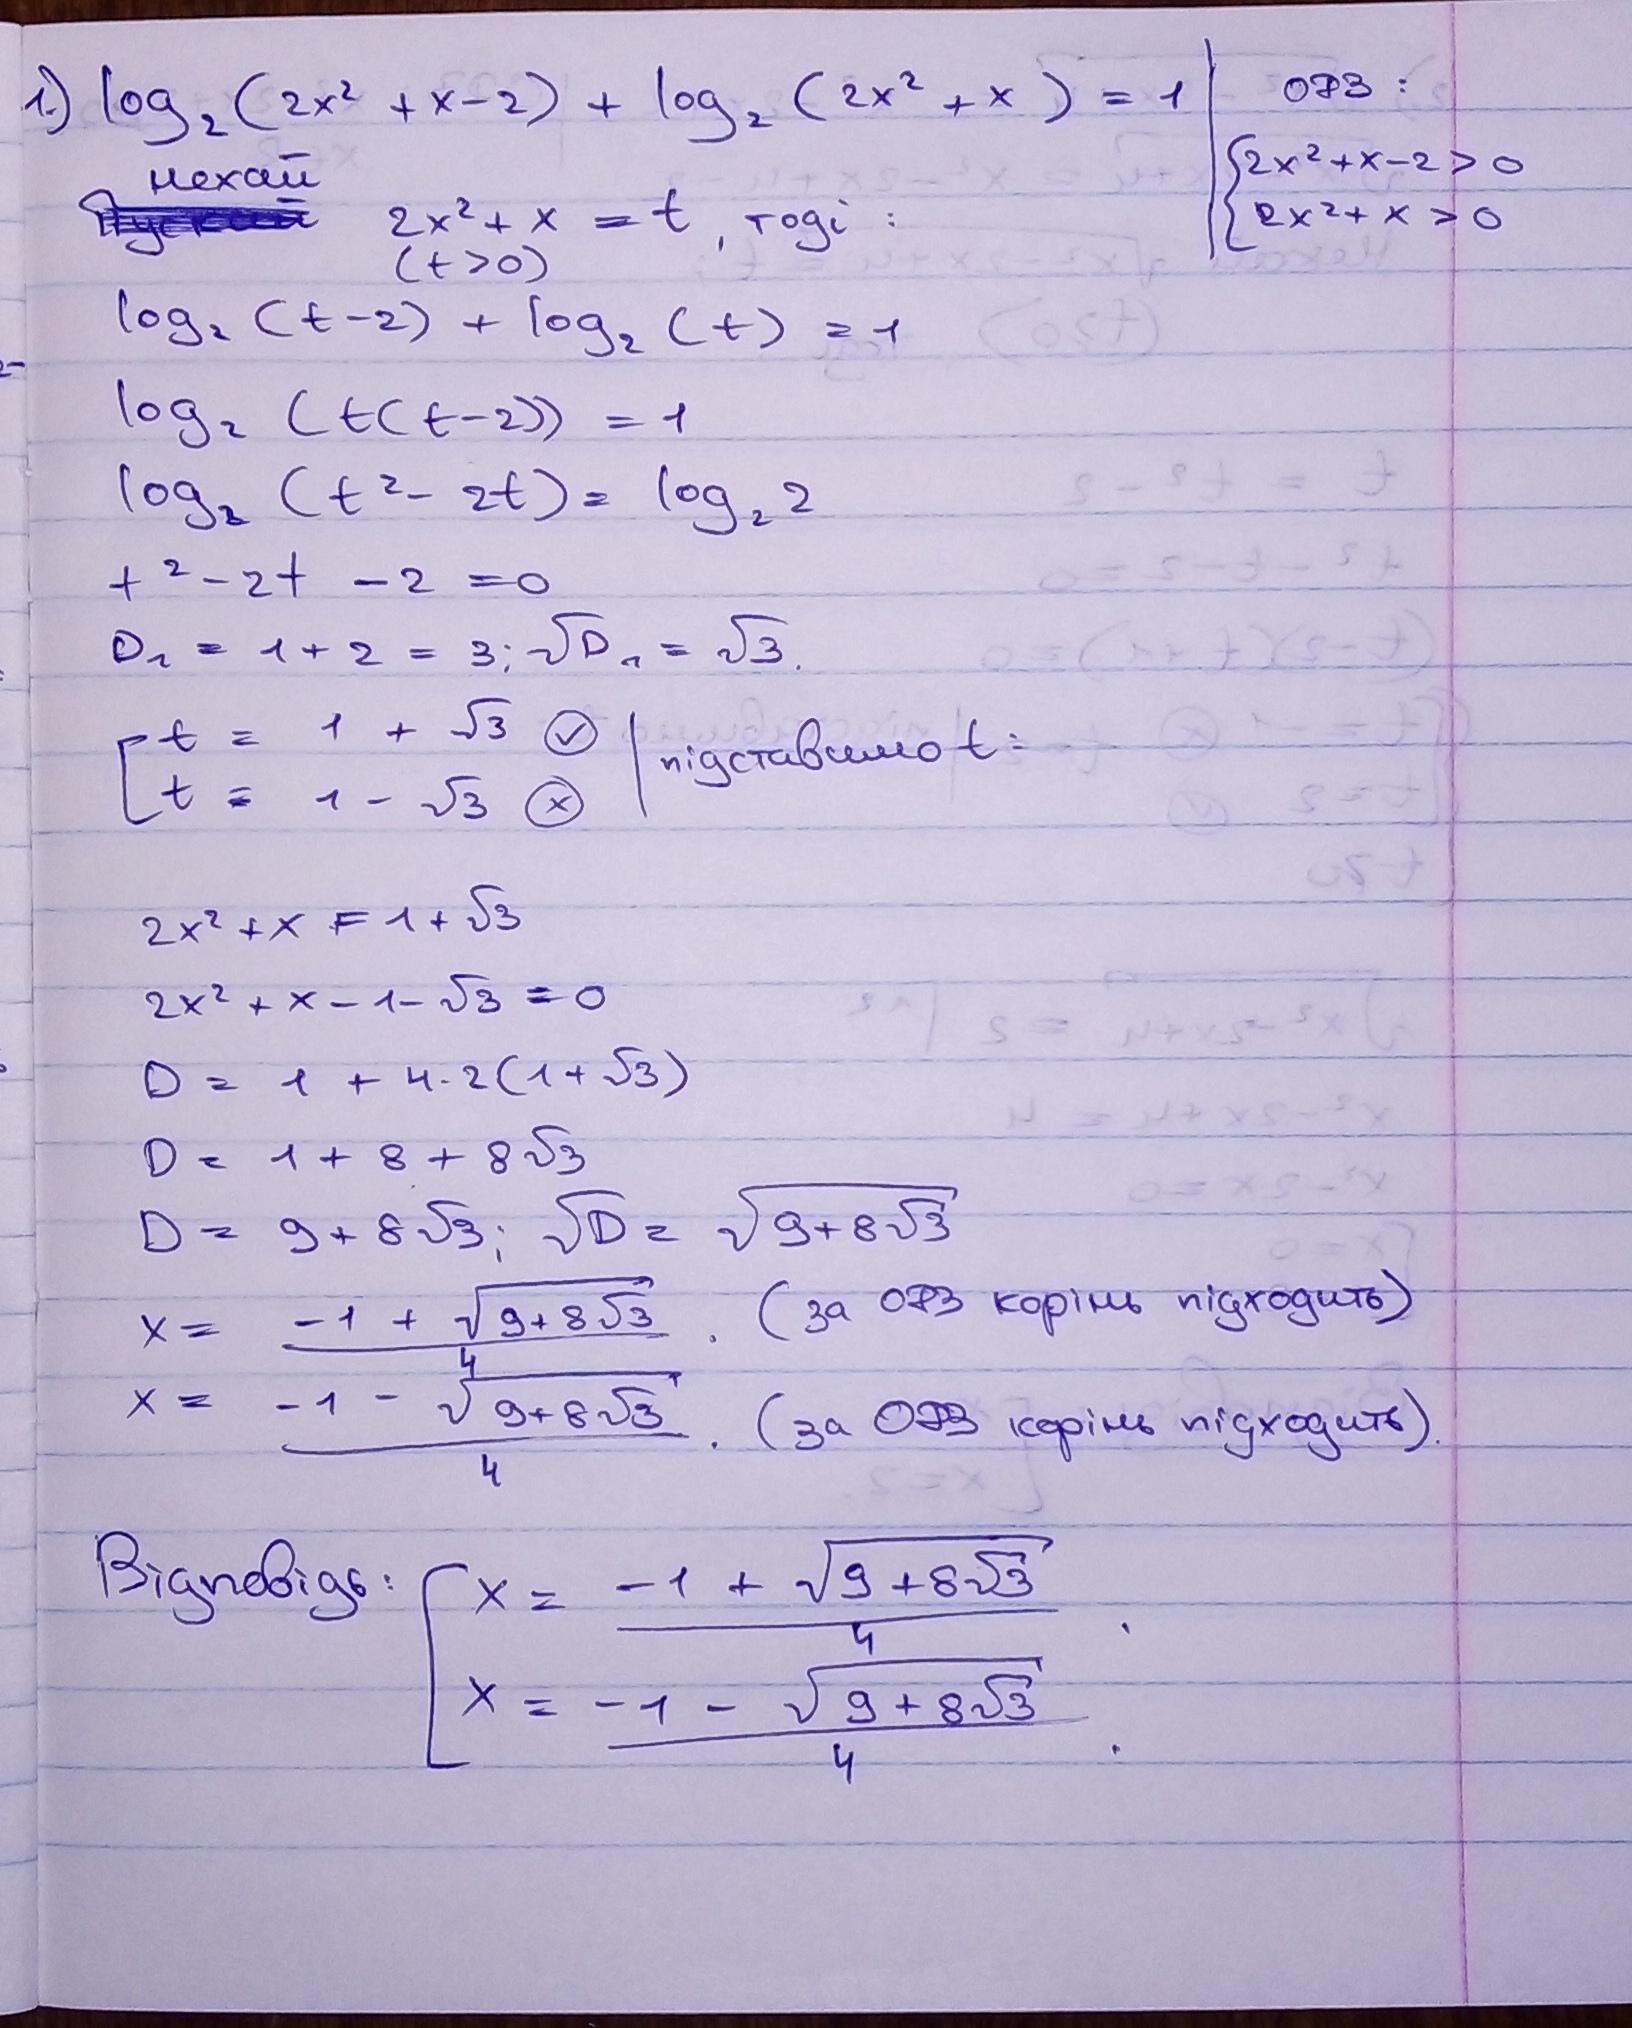 1.) log₂(2x² + x - 2) + log₂(2x² + x) = 1
ОДЗ:
{2x² + x - 2 > 0
{2x² + x > 0
нехай
2x² + x = t, тоді:
(t > 0)
log₂(t - 2) + log₂(t) = 1
log₂(t(t - 2)) = 1
log₂(t² - 2t) = log₂2
t² - 2t - 2 = 0
D₁ = 1 + 2 = 3; √D₁ = √3.
[t = 1 + √3 ✓
[t = 1 - √3 ×
підставимо t:
2x² + x = 1 + √3
2x² + x - 1 - √3 = 0
D = 1 + 4·2(1 + √3)
D = 1 + 8 + 8√3
D = 9 + 8√3; √D = √(9 + 8√3)
x = (-1 + √(9 + 8√3))/4. (за ОДЗ корінь підходить)
x = (-1 - √(9 + 8√3))/4. (за ОДЗ корінь підходить).
Відповідь: [x = (-1 + √(9 + 8√3))/4.
[x = (-1 - √(9 + 8√3))/4.